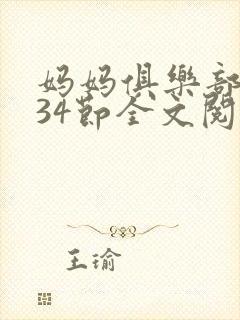 妈妈俱樂部
34節全文閱
王瑜